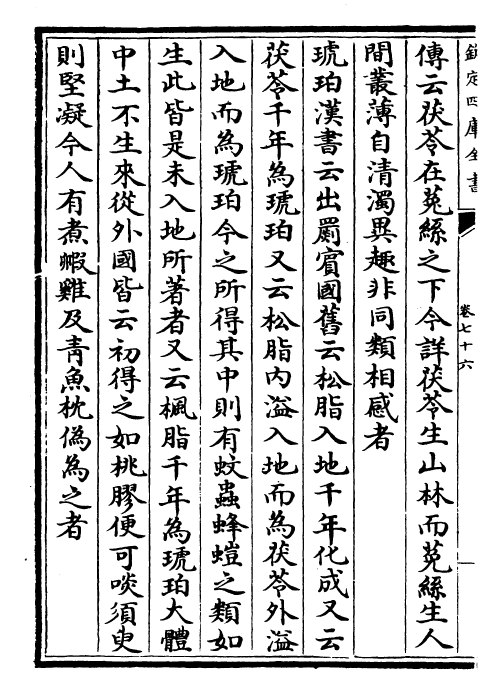 欽定四庫全書
卷七十六
傳云茯苓在菟絲之下今詳茯苓生山林而菟絲生人
間叢薄自清濁異趣非同類相感者
琥珀漢書云出罽賔國舊云松脂入地千年化成又云
茯苓千年為琥珀又云松脂内溢入地而為茯苓外溢
入地而為琥珀今之所得其中則有蚊蟲蜂螘之類如
生此皆是未入地所著者又云楓脂千年為琥珀大體
中土不生來從外國皆云初得之如桃膠便可啖須臾
則堅凝今人有煮㲉雞及青魚枕偽為之者